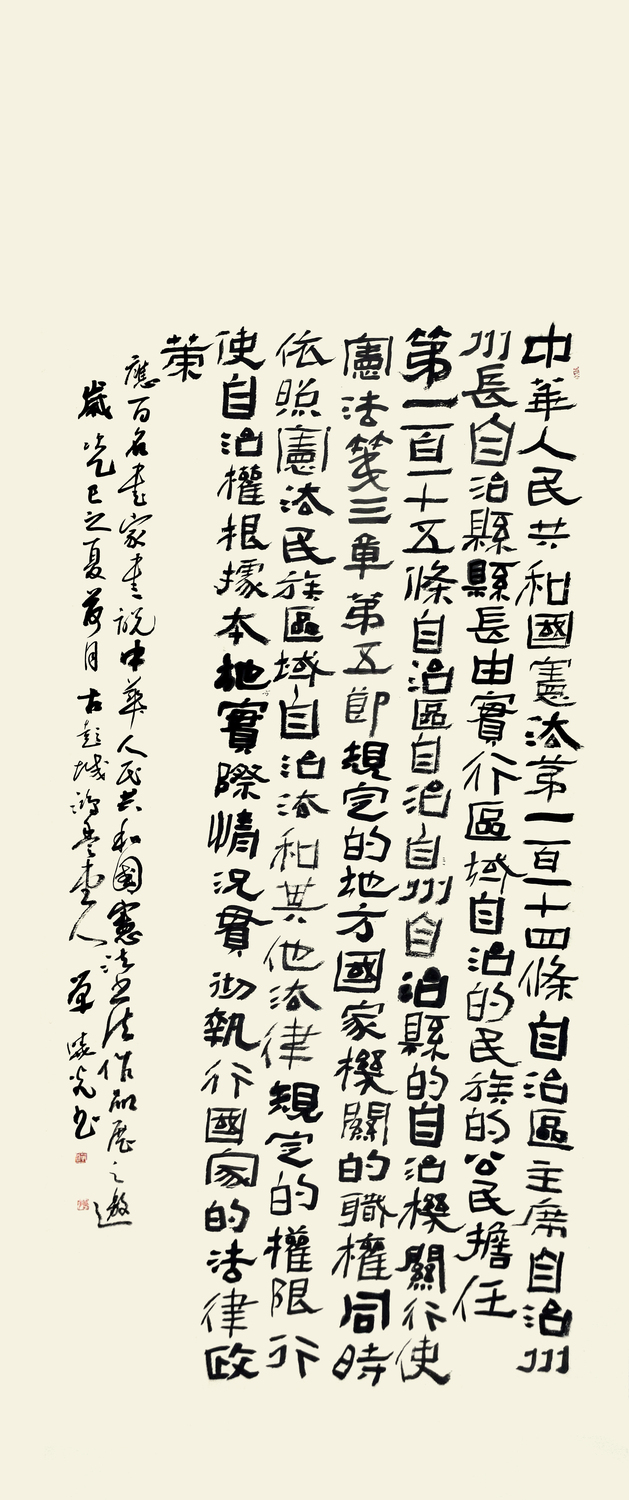 中華人民共和國憲法第一百一十四條自治區主席自治州
州長自治縣縣長由實行區域自治的民族的公民擔任
第一百一十五條自治區自治自州自治縣的自治機關行使
憲法第三章第五節規定的地方國家機關的職權同時
依照憲法民族區域自治法和其他法律規定的權限行
使自治權根據本地實際情況貫徹執行國家的法律政
策
應百名書家書說中華人民共和國憲法書法作品展之邀
歲之夏荷月古彭城人